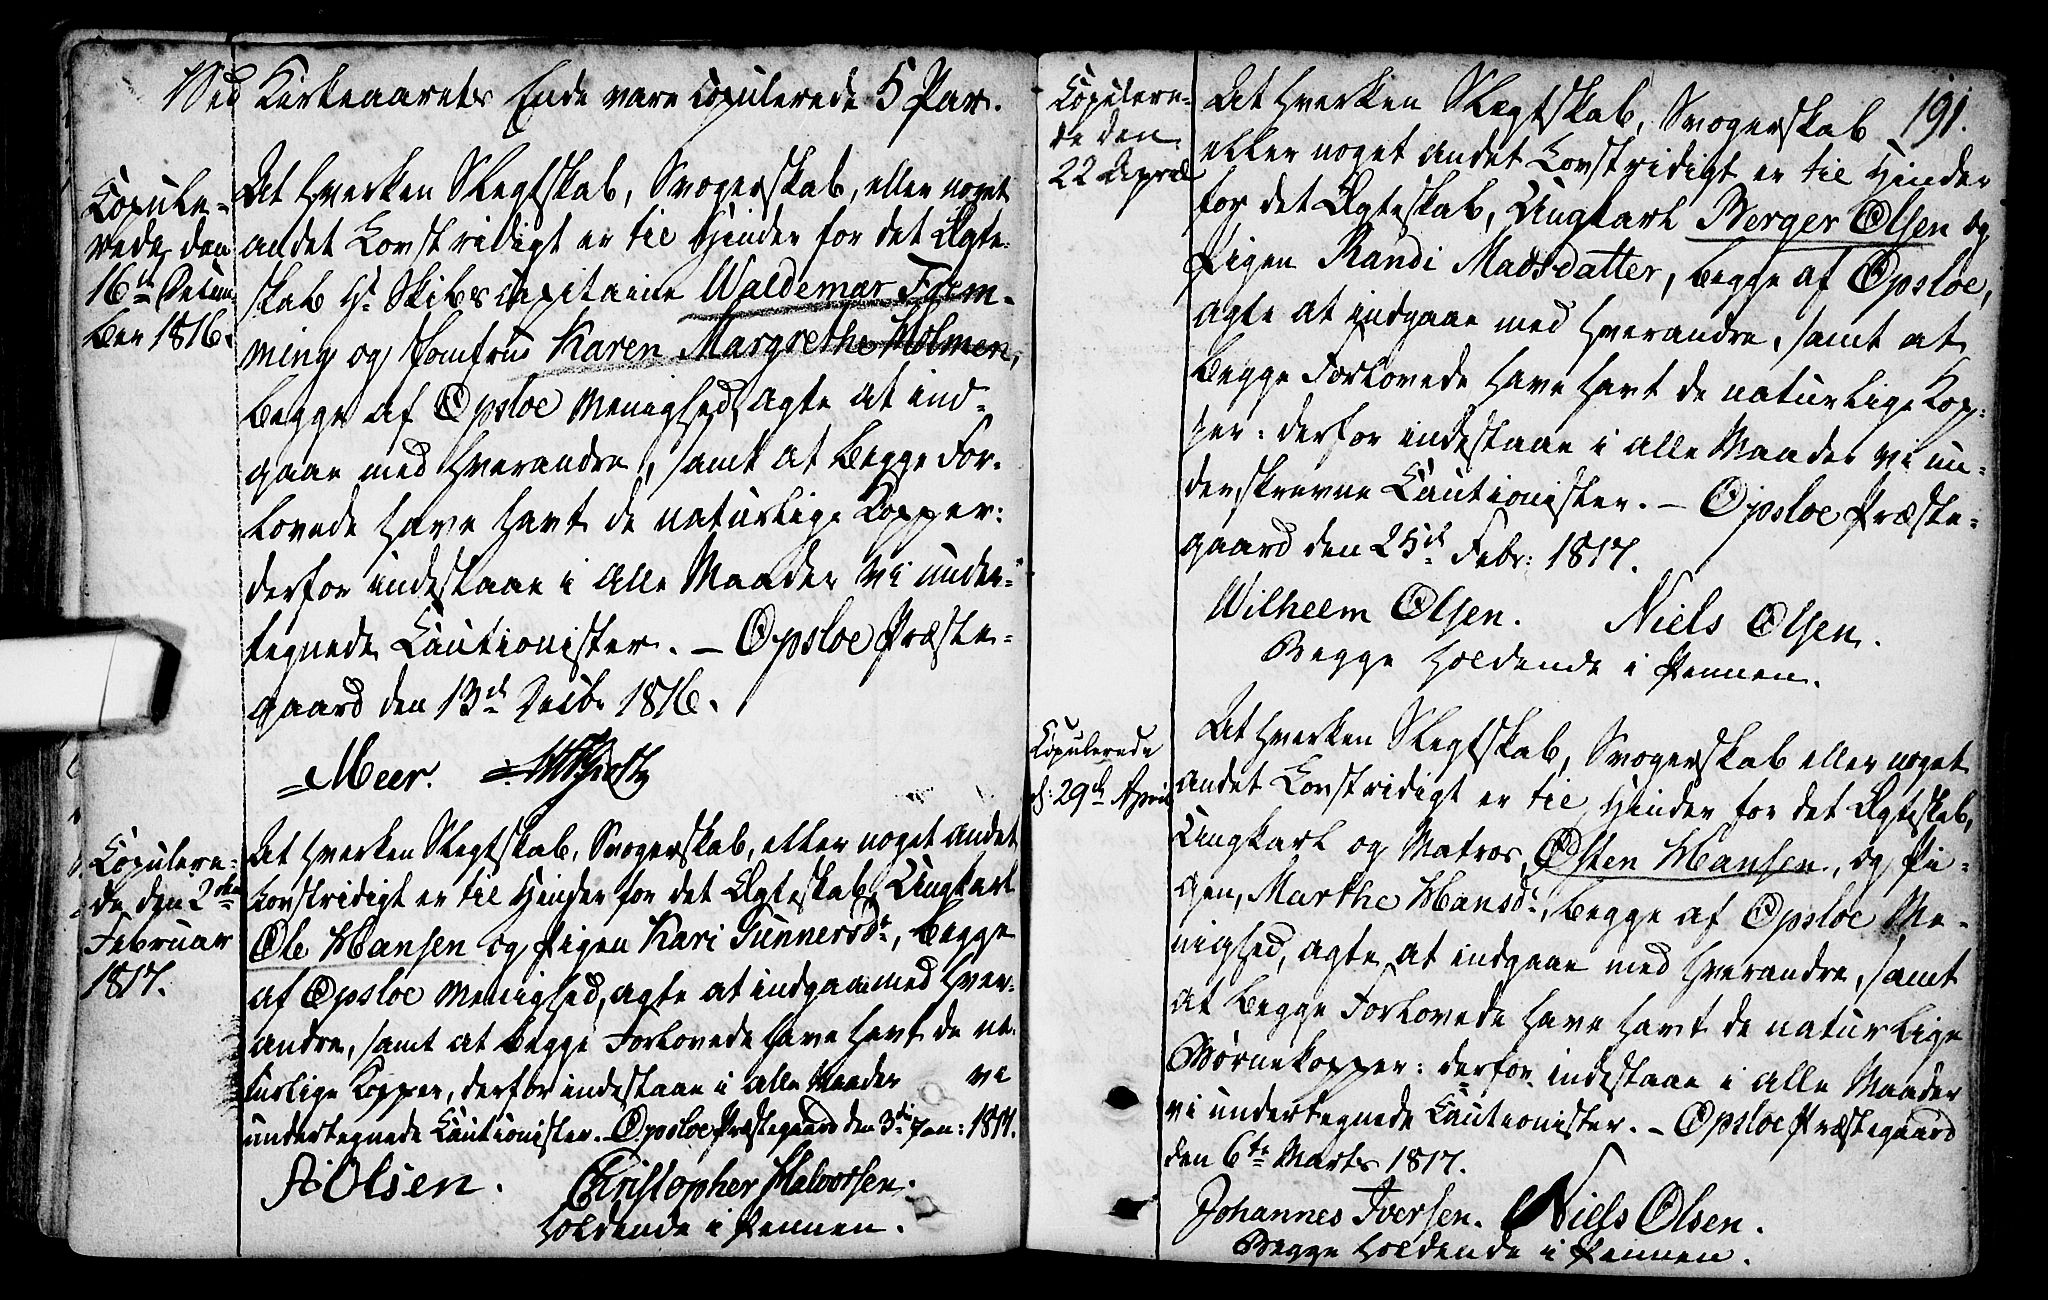 Ved Kirkeaarets Ende vare copulerede 5 Par.
Copule-
rede den
16de Decem-
ber 1816.
At hverken Slegtskab, Svogerskab, eller noget
andet Lovstridigt er til Hinder for det Ægte-
skab Hr. Skibscapitaine Waldemar Flem-
ming og Jomfrue Karen Margrethe Holmen,
begge af Opsloe Menighed, agte at ind-
gaae med hverandre, samt at begge For-
lovede have havt de naturlige Kopper:
derfor indestaae i alle Maader vi under-
tegnede Cautionister. – Opsloe Præste-
gaard den 13de Decbr 1816.
Meer.
Copulere-
de den 2den
Februar
1817.
At hverken Slegtskab, Svogerskab, eller noget andet
Lovstridigt er til Hinder for det Ægteskab, Ungkarl
Ole Hansen og Pigen Kari Gunnersdr, begge
af Opsloe Menighed, agte at indgaae med hver-
andre, samt at begge Forlovede have havt de na-
turlige Kopper, derfor indestaae i alle Maader vi
undertegnede Cautionister. – Opsloe Præstegaard den 3die Jan: 1817.
A Olsen. Christopher Halvorsen.
holdende i Pennen.
191.
Copulere-
de den
22 April
At hverken Slegtskab, Svogerskab
eller noget andet Lovstridigt er til Hinder
for det Ægteskab, Ungkarl Berger Olsen og
Pigen Randi Madsdatter, begge af Opsloe,
agte at indgaae med hverandre, samt at
begge Forlovede have havt de naturlige Kop-
per: derfor indestaae i alle Maader vi un-
derskrevne Cautionister. – Opsloe Præste-
gaard den 25de Febr: 1817.
Wilhelm Olsen. Niels Olsen.
Begge holdende i Pennen.
Copulerede
d: 29de April
At hverken Slegtskab, Svogerskab eller noget
andet Lovstridigt er til Hinder for det Ægteskab,
Ungkarl og Matros, Østen Hansen, og Pi-
gen, Marthe Hansdr, begge af Opsloe Me-
nighed, agte at indgaae med hverandre, samt
at begge Forlovede have havt de naturlige
Børnekopper: derfor indestaae i alle Maader
vi undertegnede Cautionister. – Opsloe Præstegaard
den 6te Marts 1817.
Johannes Iversen. Niels Olsen.
Begge holdende i Pennen.